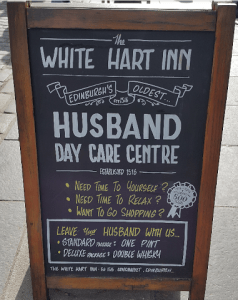 the
WHITE HART INN
EDINBURGH'S OLDEST...
HUSBAND
DAY CARE CENTRE
ESTABLISHED 1516
• NEED TIME TO YOURSELF?
• NEED TIME TO RELAX?
• WANT TO GO SHOPPING?
LEAVE your HUSBAND WITH US...
• STANDARD PACKAGE: ONE PINT
• DELUXE PACKAGE: DOUBLE WHISKY
THE WHITE HART INN